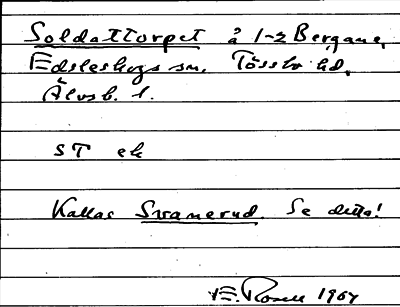 Soldattorpet å 1-2 Bergane,
Edsleskogs sn. Tössbo hd.
Älvsb. l.
ST ek
Kallas Svanerud. Se detta!
E. Rosell 1964